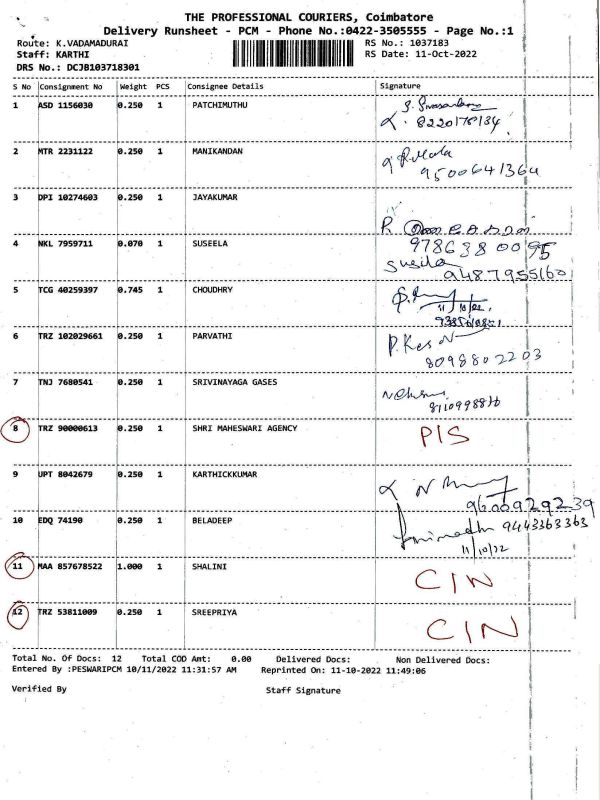 THE PROFESSIONAL COURIERS, Coimbatore
Delivery Runsheet - PCM - Phone No.:0422-3505555 - Page No.:1
Route: K.VADAMADURAI RS No.: 1037183
Staff: KARTHI RS Date: 11-Oct-2022
DRS No.: DCJB103718301
S No Consignment No Weight PCS Consignee Details Signature
1 ASD 1156030 0.250 1 PATCHIMUTHU
8220178134
2 MTR 2231122 0.250 1 MANIKANDAN
9500641364
3 DPI 10274603 0.250 1 JAYAKUMAR
9786380095
4 NKL 7959711 0.070 1 SUSEELA susila
9487955160
5 TCG 40259397 0.745 1 CHOUDHRY
11/10/22
6 TRZ 102029661 0.250 1 PARVATHI
8098802203
7 TNJ 7680541 0.250 1 SRIVINAYAGA GASES
8 TRZ 90000613 0.250 1 SHRI MAHESWARI AGENCY PIS
9 UPT 8042679 0.250 1 KARTHICKKUMAR
9600929239
10 EDQ 74190 0.250 1 BELADEEP 9443363363
11/10/22
11 MAA 857678522 1.000 1 SHALINI CIN
12 TRZ 53811009 0.250 1 SREEPRIYA CIN
Total No. Of Docs: 12 Total COD Amt: 0.00 Delivered Docs: Non Delivered Docs:
Entered By :PESWARIPCM 10/11/2022 11:31:57 AM Reprinted On: 11-10-2022 11:49:06
Verified By Staff Signature